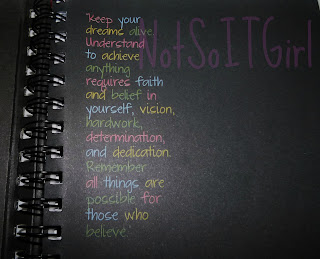 "Keep your
dreams alive.
Understand
to achieve
anything
requires faith
and belief in
yourself, vision,
hardwork,
determination,
and dedication.
Remember
all things are
possible for
those who
believe."
NotSoITGirl